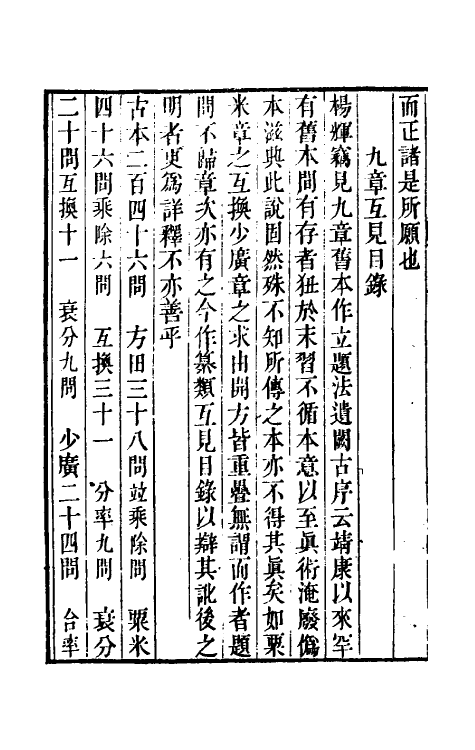 而正諸是所願也
九章互見目錄
楊輝竊見九章舊本作立題法遺闕古序云靖康以來罕
有舊本間有存者狃於末習不循本意以至眞術淹廢僞
本滋典此說固然殊不知所傳之本亦不得其眞矣如粟
米章之互換少廣章之求由開方皆重疊無謂而作者題
問不歸章次亦有之今作纂類互見目錄以辯其訛後之
明者更爲詳釋不亦善乎
古本二百四十六問 方田三十八問竝乘除問 粟米
四十六問乘除六問 互換三十一 分率九問 衰分
二十問互換十一 衰分九問 少廣二十四問 合率